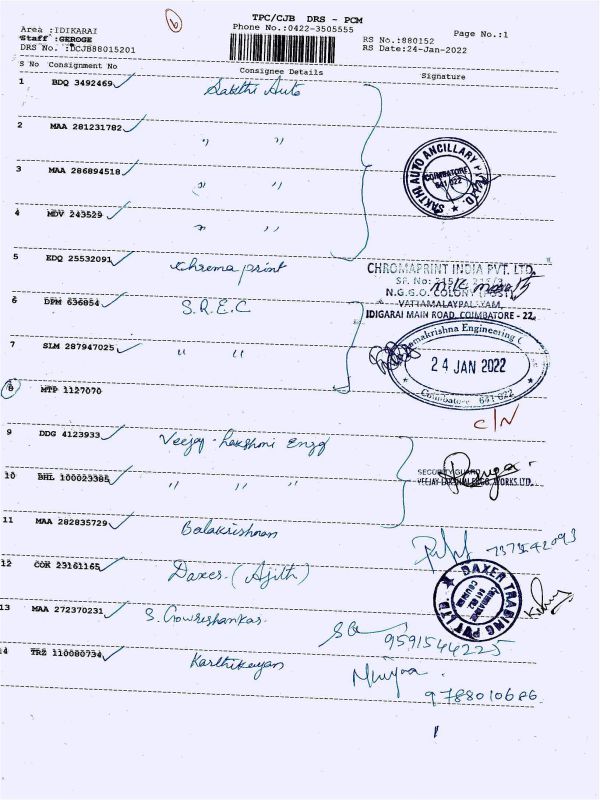 b
TPC/CJB DRS - PCM
Phone No.:0422-3505555
Page No.:1
Area :IDIKARAI
Staff :GEROGE
DRS No. :DCJB88015201
RS No.:880152
RS Date:24-Jan-2022
S No Consignment No Consignee Details Signature
1 BDQ 3492469 Sakthi Auto
2 MAA 281231782 " "
3 MAA 286894518 " "
4 MDV 243529 " "
SAKTHI AUTO ANCILLARY P LTD
COIMBATORE
641 022
5 EDQ 25532091 Chroma print
CHROMAPRINT INDIA PVT. LTD.
N.G.G.O. COLONY (POST)
VATTAMALAYPALAYAM,
IDIGARAI MAIN ROAD, COIMBATORE - 22.
6 DPM 636854 S.R.E.C
7 SLM 287947025 " "
Ramakrishna Engineering C
24 JAN 2022
Coimbatore 641 022
8 MTP 1127070
C/N
9 DDG 4123933 Veejay Lakshmi Engg
10 BHL 100023385 " " "
SECURITY GUARD
VEEJAY LAKSHMI ENGG. WORKS LTD.
11 MAA 282835729 Balakrishnan
7373542093
12 COK 23161165 Daxer (Ajith)
DAXER TRADING PVT LTD
13 MAA 272370231 S. Gowrishankar
9591544225
14 TRZ 110080734 Karthikeyan
9788010686